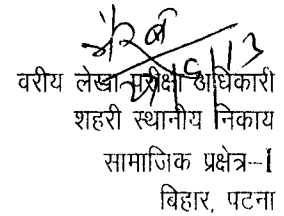 वरीय लेखा परीक्षा अधिकारी
शहरी स्थानीय निकाय
सामाजिक प्रक्षेत्र-I
बिहार, पटना